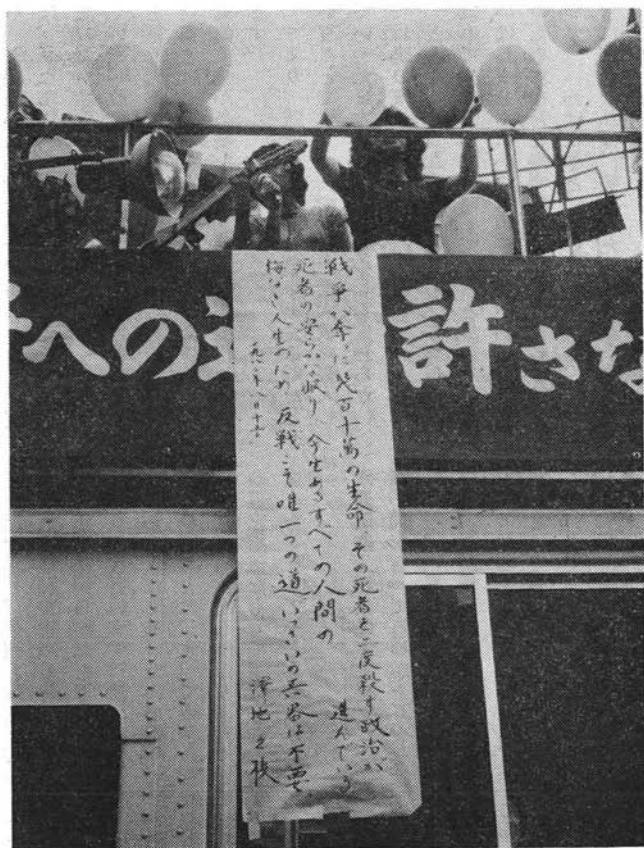 への道 許さな
戦争が奪った幾百十萬の生命、その死者を二度殺す政治が
進んでいる
死者の安らかな眠り 今生あるすべての人間の
悔なき人生のため 反戦こそ唯一つの道 いっさいの兵器は不要で
澤地久枝